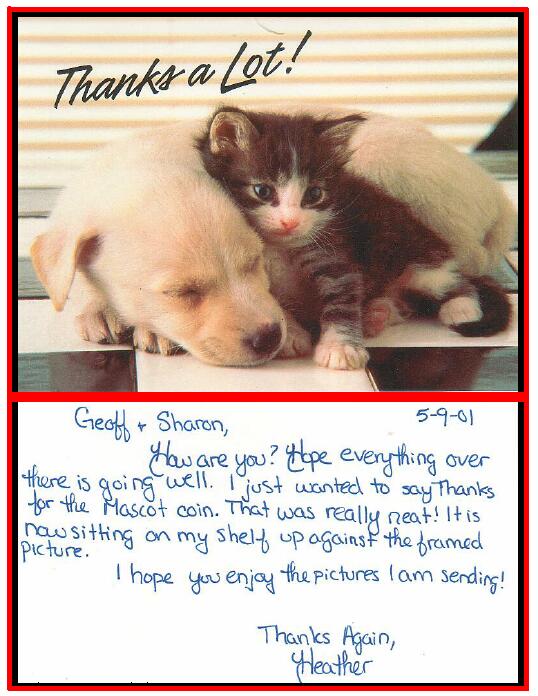 Thanks a Lot!
Geoff + Sharon,
5-9-01
How are you? Hope everything over
there is going well. I just wanted to say Thanks
for the Mascot coin. That was really neat! It is
now sitting on my shelf up against the framed
picture.
I hope you enjoy the pictures I am sending!
Thanks Again,
Heather